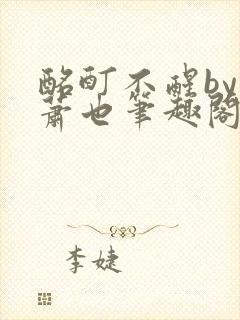 酩酊不醒by
萧也筆趣阁
李婕